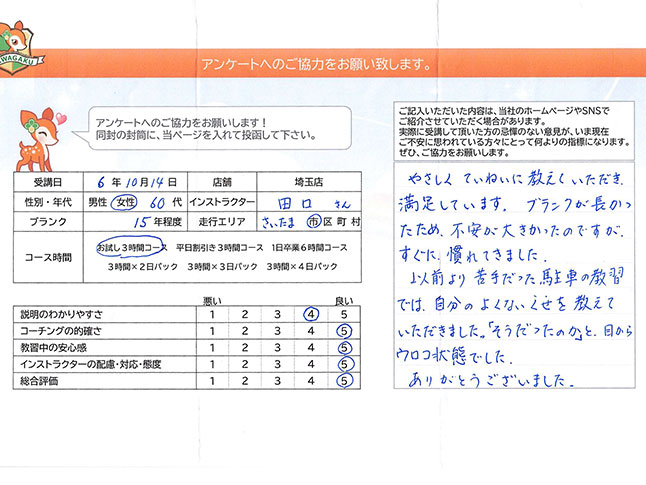 IWAGAKU
アンケートへのご協力をお願い致します。
アンケートへのご協力をお願いします！
同封の封筒に、当ページを入れて投函して下さい。
ご記入いただいた内容は、当社のホームページやSNSで
ご紹介させていただく場合があります。
実際に受講して頂いた方の忌憚のない意見が、いま現在
ご不安に思われている方々にとって何よりの指標になります。
ぜひ、ご協力をお願いします。
受講日 6 年 10 月 14 日 店舗 埼玉店
性別・年代 男性 女性 60 代 インストラクター 田口 さん
ブランク 15 年程度 走行エリア さいたま 市区町村
コース時間 お試し3時間コース 平日割引き3時間コース 1日卒業6時間コース
3時間×2日パック 3時間×3日パック 3時間×4日パック
悪い 良い
説明のわかりやすさ 1 2 3 4 5
コーチングの的確さ 1 2 3 4 5
教習中の安心感 1 2 3 4 5
インストラクターの配慮・対応・態度 1 2 3 4 5
総合評価 1 2 3 4 5
やさしく ていねいに 教えていただき、
満足しています。 ブランクが長かっ
たため、不安が大きかったのですが、
すぐに、慣れてきました。
以前より苦手だった駐車の教習
では、自分のよくないくせを教えて
いただきました。「そうだったのか」と、目から
ウロコ状態でした。
ありがとうございました。